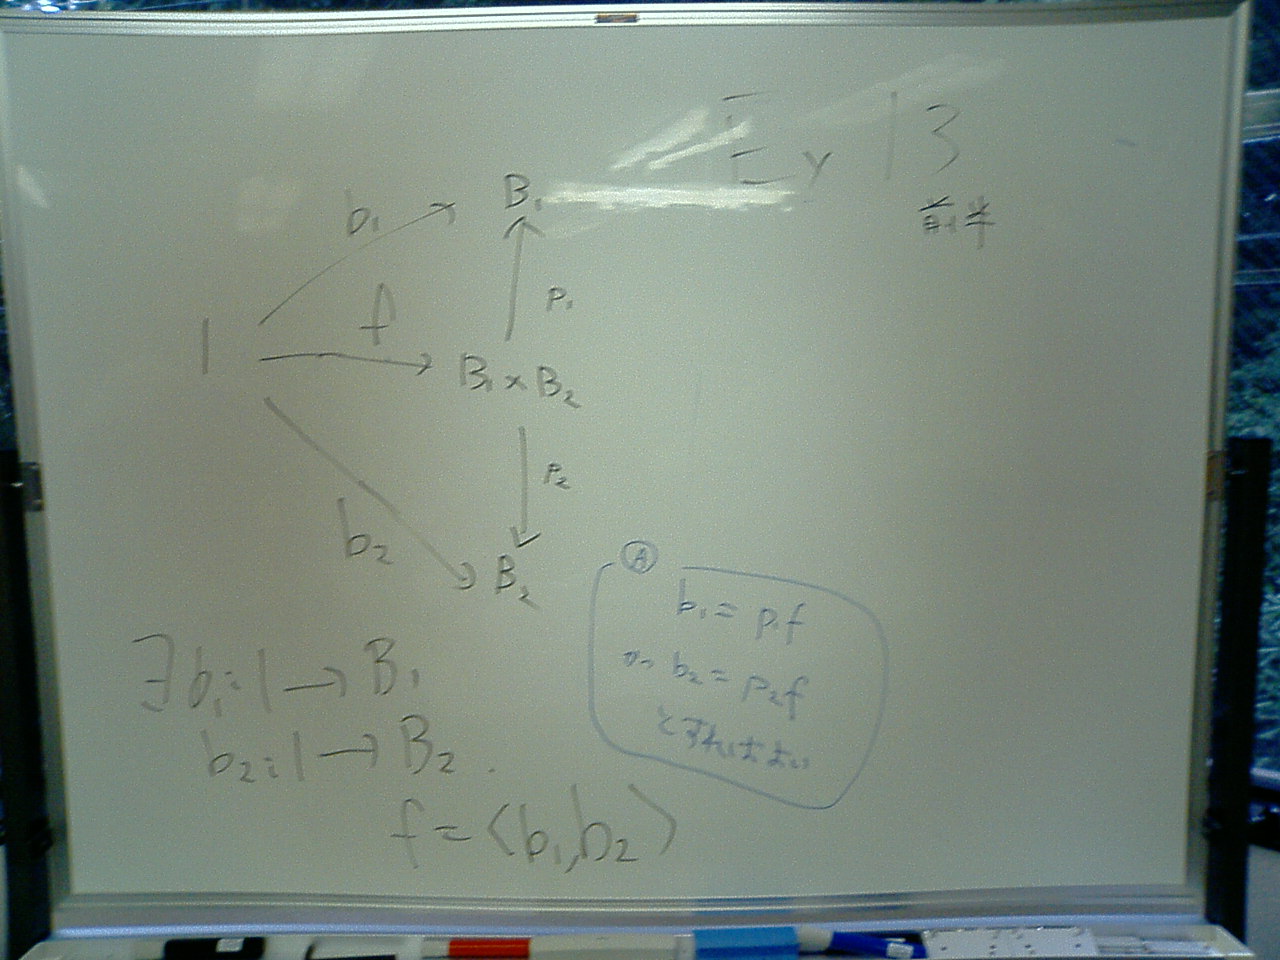 Ex 13
前半
b₁
B₁
f
p₁
1
B₁ × B₂
p₂
b₂
B₂
Ⓐ
b₁ = p₁f
b₂ = p₂f
とすればよい
∃b₁:1→B₁
b₂:1→B₂.
f = ⟨b₁,b₂⟩